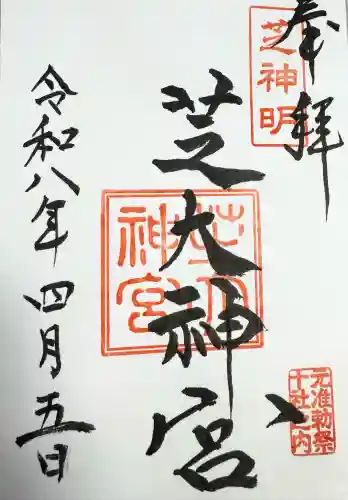 奉拝
芝神明
芝大神宮
芝大神宮
元准勅祭
十社之内
令和八年四月五日